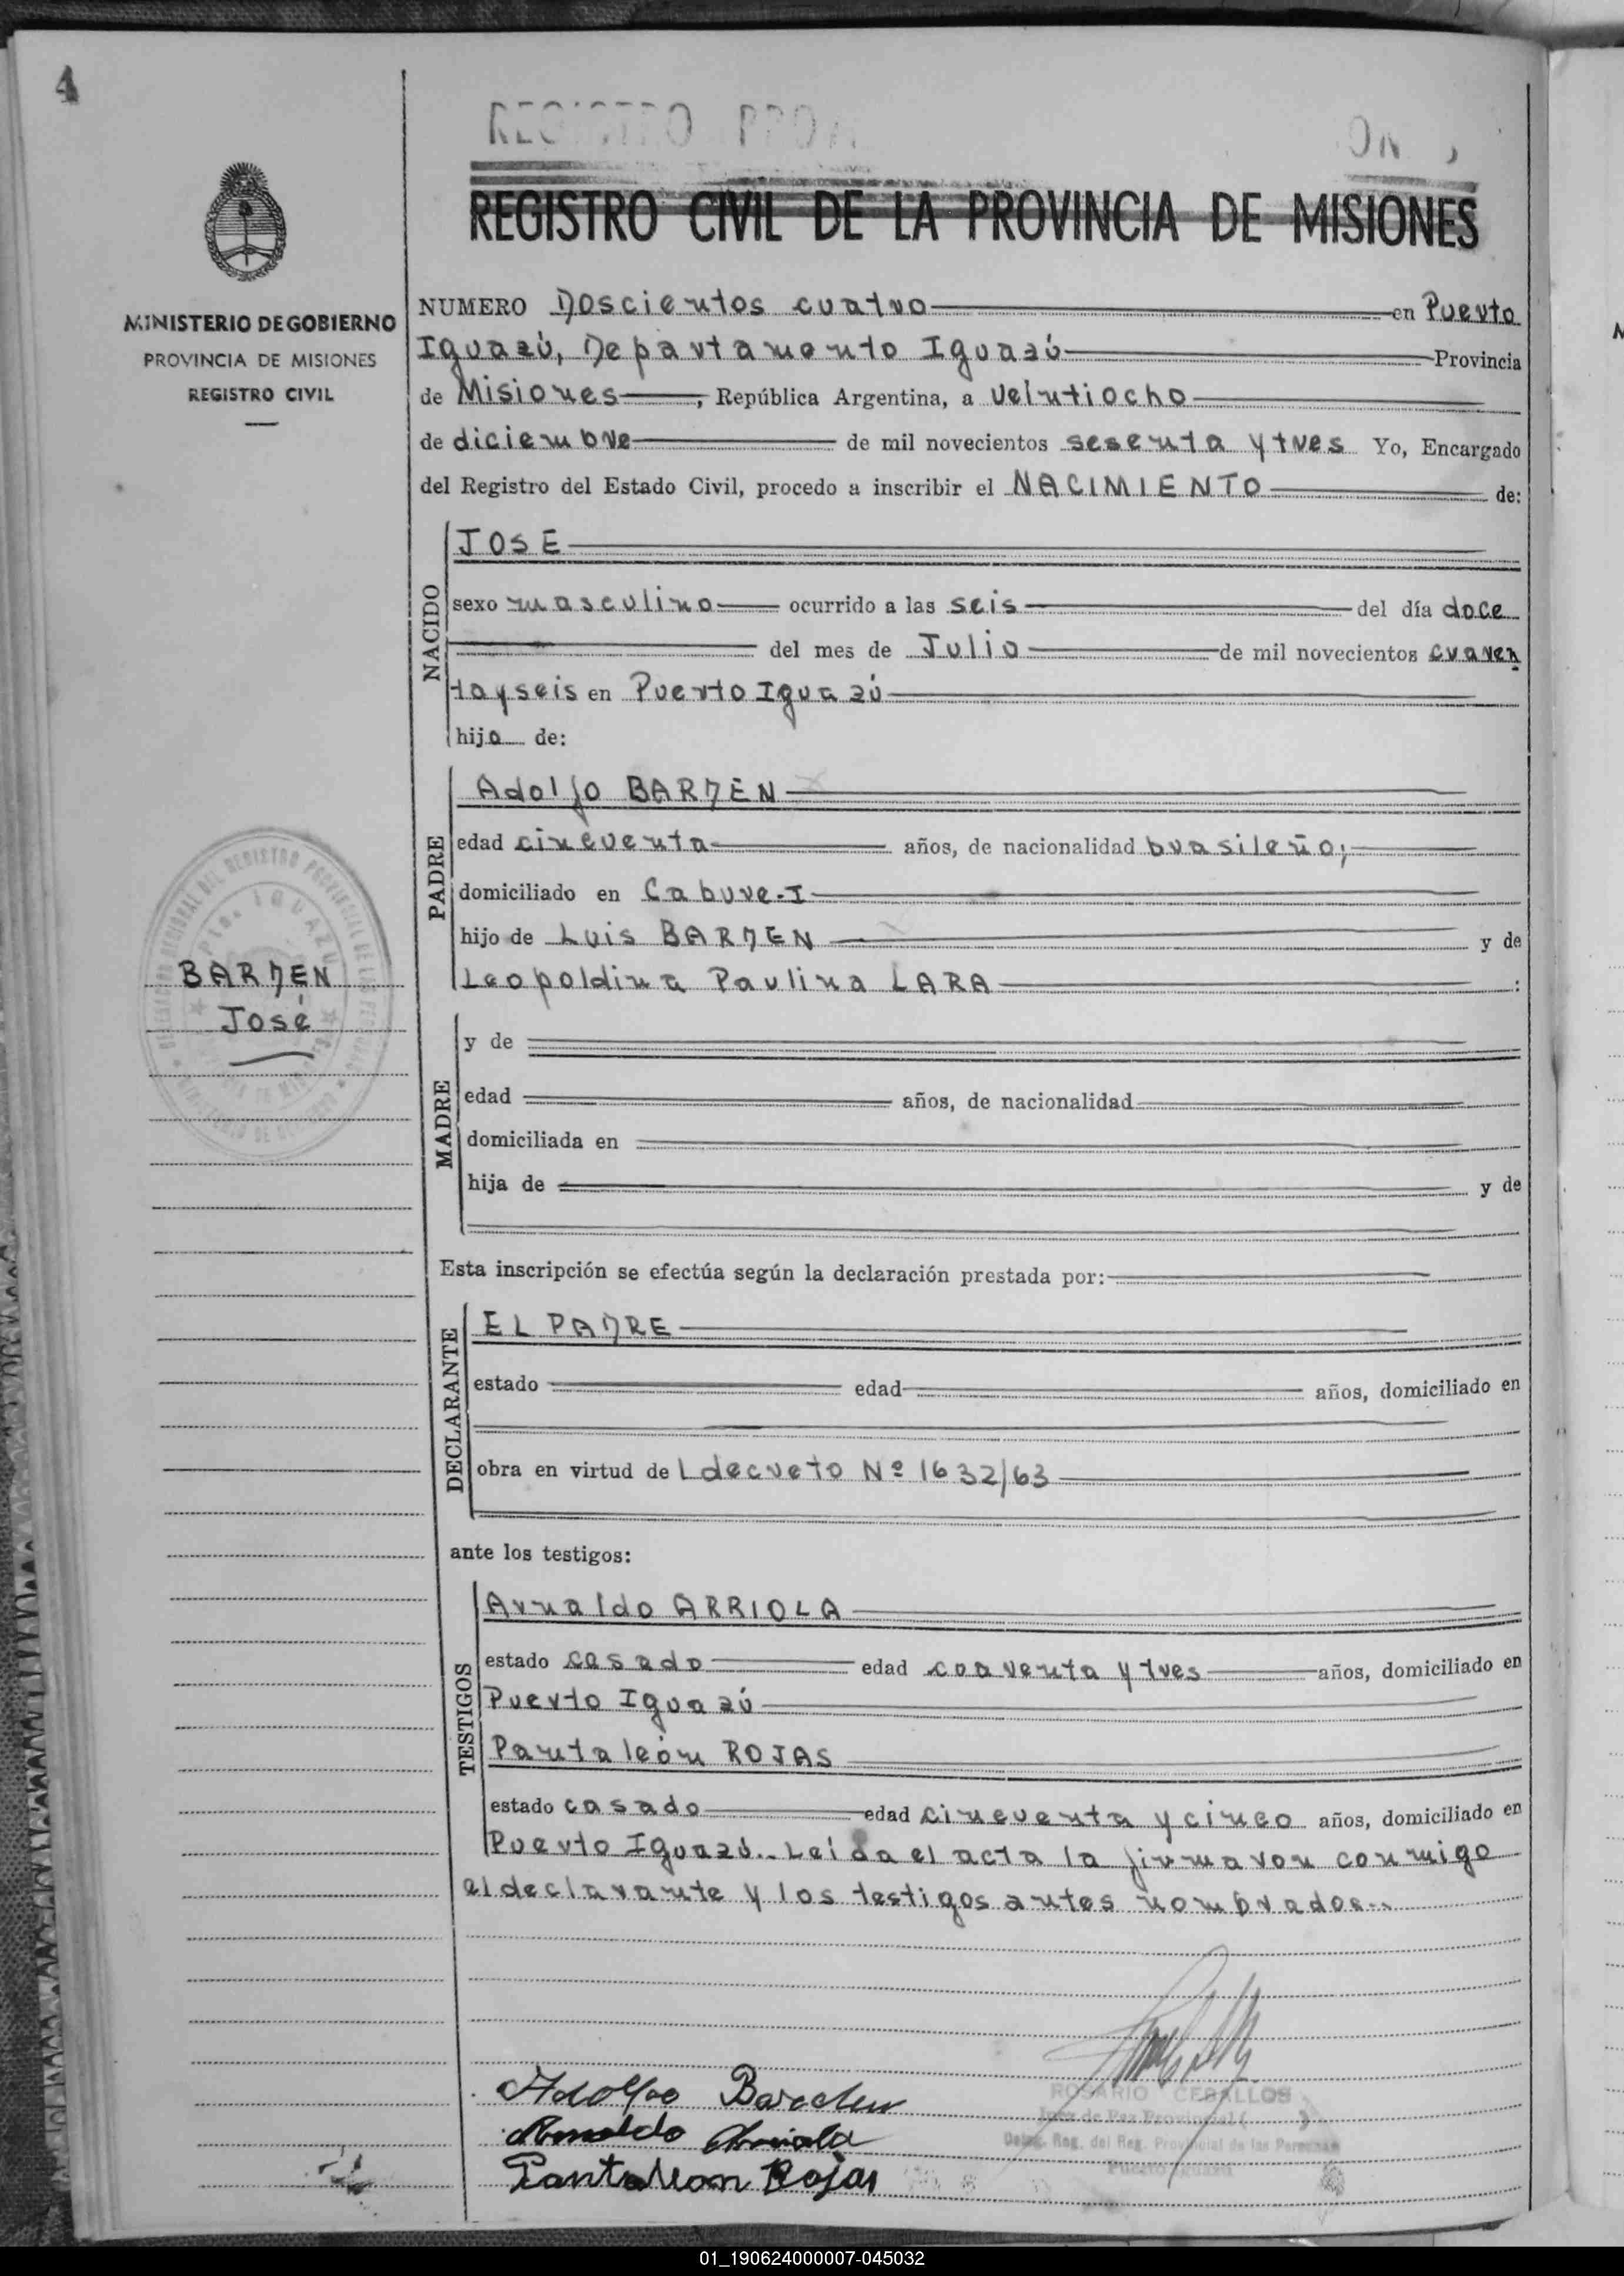 4
REGISTRO CIVIL DE LA PROVINCIA DE MISIONES
MINISTERIO DE GOBIERNO
PROVINCIA DE MISIONES
REGISTRO CIVIL
NUMERO Doscientos cuatro en Puerto
Iguazú, Departamento Iguazú Provincia
de Misiones, República Argentina, a veintiocho
de diciembre de mil novecientos sesenta y tres Yo, Encargado
del Registro del Estado Civil, procedo a inscribir el NACIMIENTO de:
NACIDO
JOSE
sexo masculino ocurrido a las seis del día doce
del mes de Julio de mil novecientos cuaren
tayseis en Puerto Iguazú
hijo de:
PADRE
Adolfo BARDEN
edad cincuenta años, de nacionalidad brasileño;
domiciliado en Cabure-I
hijo de Luis BARDEN y de
Leopoldina Paulina LARA :
BARDEN
José
MADRE
y de
edad años, de nacionalidad
domiciliada en
hija de y de
Esta inscripción se efectúa según la declaración prestada por:
DECLARANTE
EL PADRE
estado edad años, domiciliado en
obra en virtud de l decreto Nº 1632/63
ante los testigos:
TESTIGOS
Arnaldo ARRIOLA
estado casado edad coarenta y tres años, domiciliado en
Puerto Iguazú
Pantaleón ROJAS
estado casado edad cincuenta y cinco años, domiciliado en
Puerto Iguazú.. Leída el acta la firmaron conmigo
el declarante y los testigos antes nombrados..
Adolfo Barden
Arnaldo Arriola
Pantaleon Rojas
ROSARIO CEBALLOS
Juez de Paz Provincial ( )
Deleg. Reg. del Reg. Provincial de las Personas
Puerto Iguazú
01_190624000007-045032